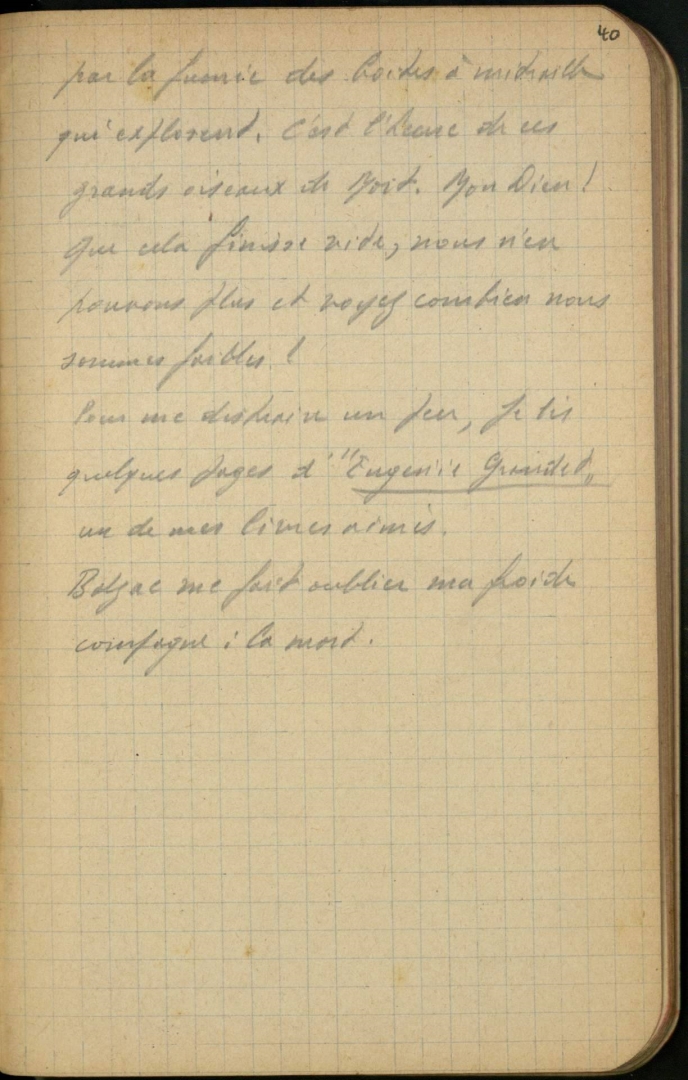 40
par la fumée des boîtes à mitraille
qui explosent. C'est l'heure de ces
grands oiseaux de Mort. Mon Dieu !
Que cela finisse vite, nous n'en
pouvons plus et voyez combien nous
sommes faibles !
Pour me distraire un peu, je lis
quelques pages d' "Eugenie Grandet"
un de mes livres aimés.
Balzac me fait oublier ma froide
compagne : la mort.